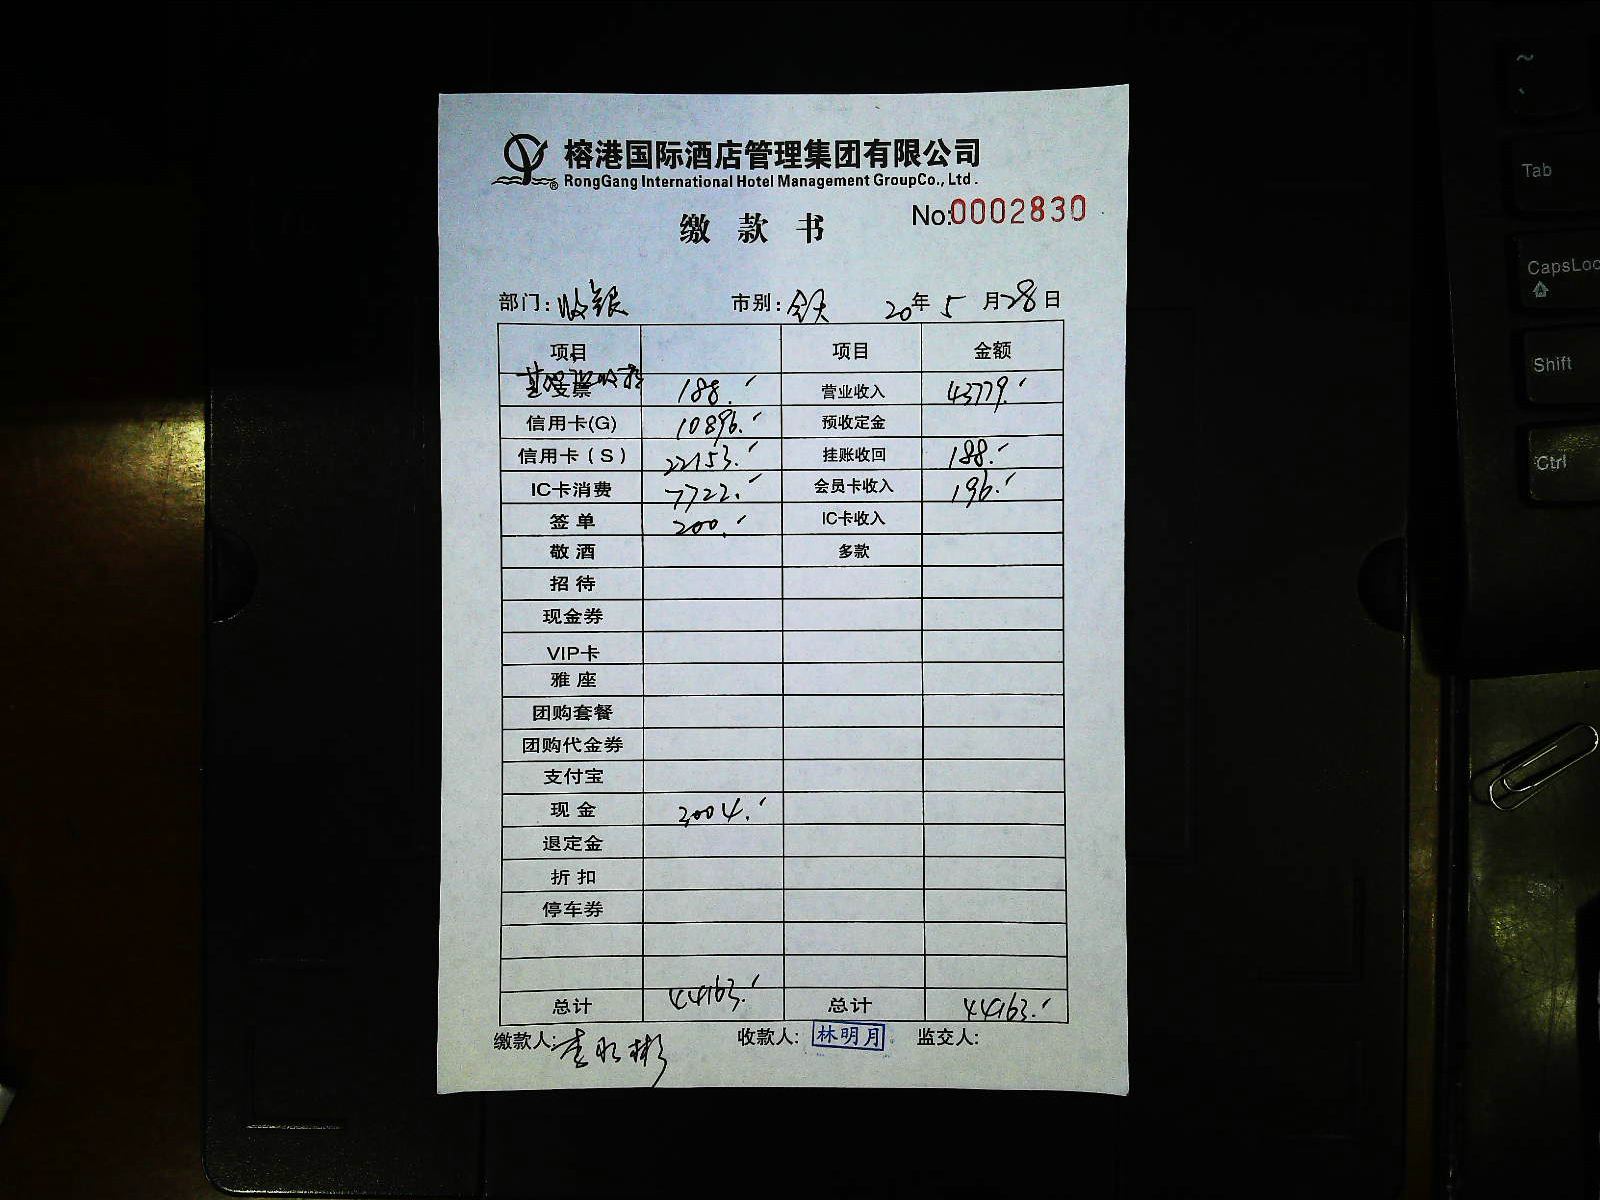 榕港国际酒店管理集团有限公司
RongGang International Hotel Management GroupCo., Ltd.
缴款书 No:0002830
部门: 收银 市别: 全天 20年 5月 28日
项目 项目 金额
支票 188. 营业收入 43779.
信用卡(G) 10896. 预收定金
信用卡(S) 22153. 挂账收回 188.
IC卡消费 7722. 会员卡收入 196.
签单 200. IC卡收入
敬酒 多款
招待
现金券
VIP卡
雅座
团购套餐
团购代金券
支付宝
现金 3004.
退定金
折扣
停车券
总计 44163. 总计 44163.
缴款人: 收款人: 林明月 监交人:
~
Tab
CapsLoc
Shift
Ctrl